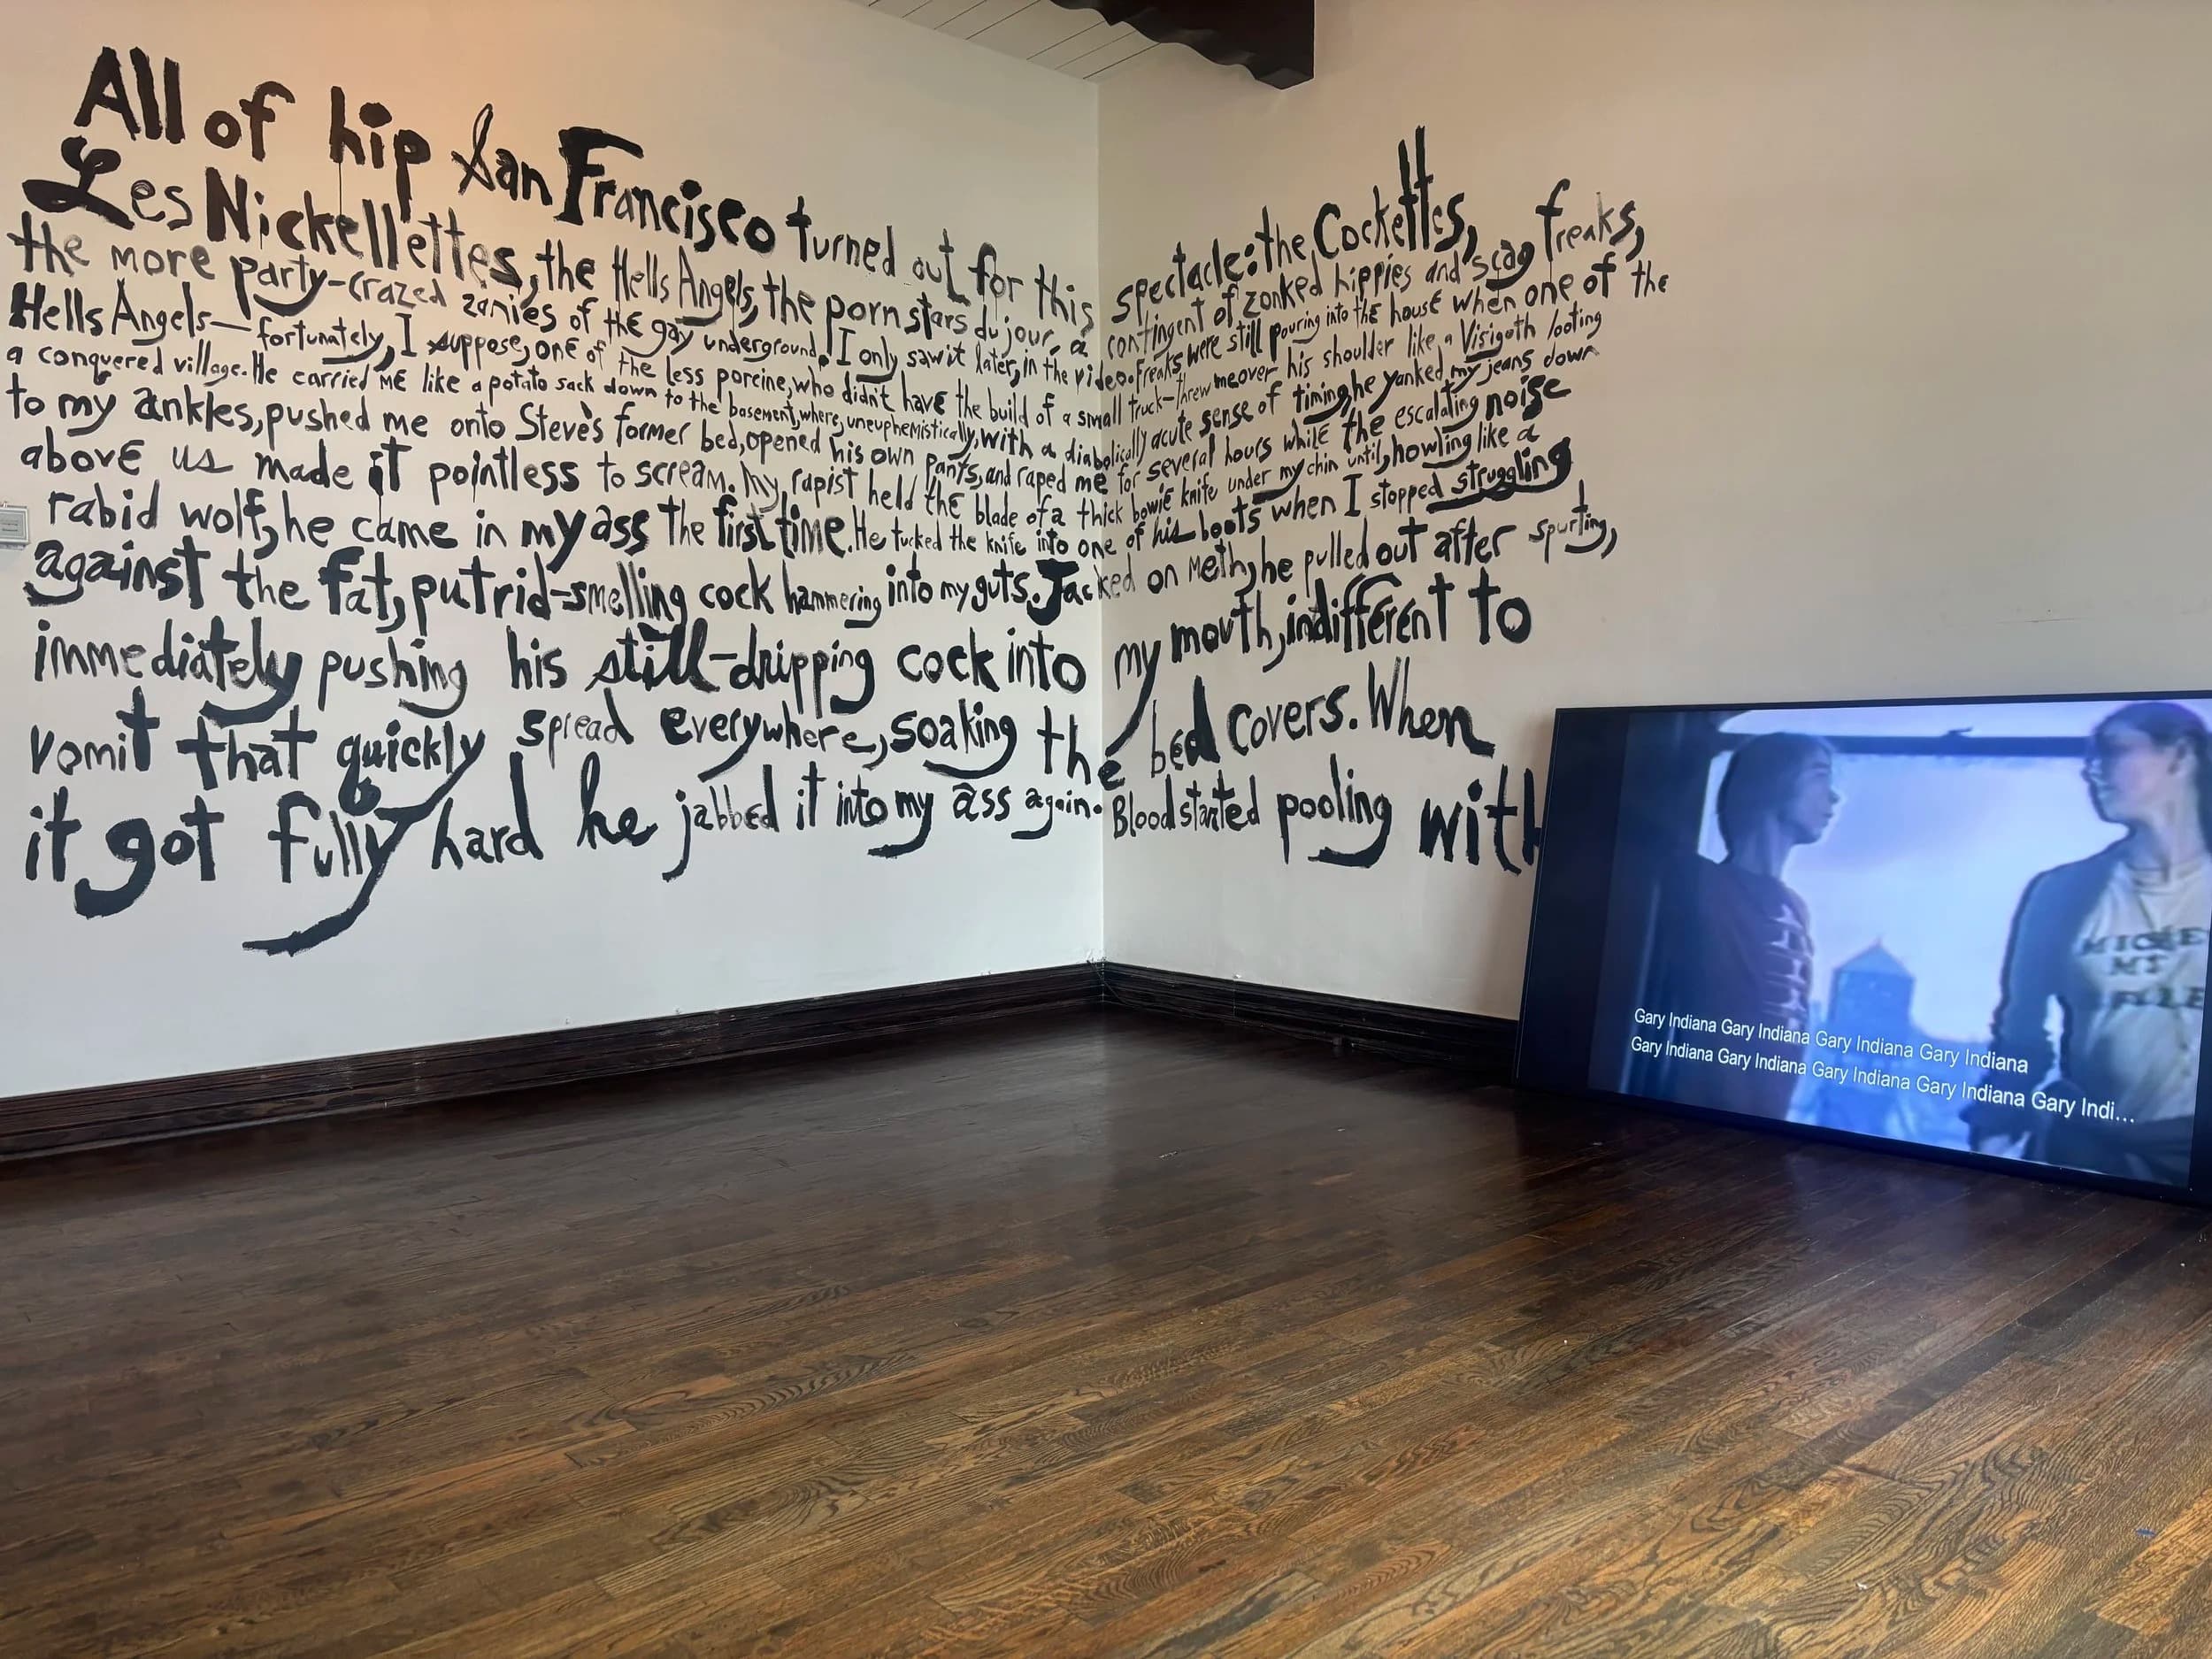 All of hip San Francisco turned out for this spectacle: the Cockettes,
Les Nickellettes, the Hells Angels, the porn stars du jour, a contingent of zonked hippies and scag freaks,
the more party-crazed zanies of the gay underground. I only saw it later, in the video. Freaks were still pouring into the house when one of the
Hells Angels—fortunately, I suppose, one of the less porcine, who didn't have the build of a small truck—threw me over his shoulder like a Visigoth looting
a conquered village. He carried me like a potato sack down to the basement, where, uneuphemistically, with a diabolically acute sense of timing, he yanked my jeans down
to my ankles, pushed me onto Steve's former bed, opened his own pants, and raped me for several hours while the escalating noise
above us made it pointless to scream. My rapist held the blade of a thick bowie knife under my chin until, howling like a
rabid wolf, he came in my ass the first time. He tucked the knife into one of his boots when I stopped struggling
against the fat, putrid-smelling cock hammering into my guts. Jacked on meth, he pulled out after spurting,
immediately pushing his still-dripping cock into my mouth, indifferent to
vomit that quickly spread everywhere, soaking the bed covers. When
it got fully hard he jabbed it into my ass again. Blood started pooling with
Gary Indiana Gary Indiana Gary Indiana Gary Indiana
Gary Indiana Gary Indiana Gary Indiana Gary Indiana Gary Indi...